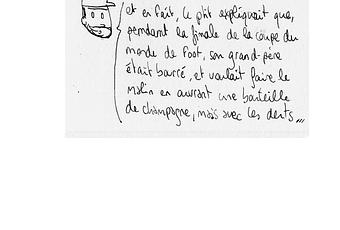 et en fait, le ptit expliquait que,
pendant la finale de la coupe du
monde de foot, son grand-père
était bourré, et voulait faire le
malin en ouvrant une bouteille
de champagne, mais avec les dents...